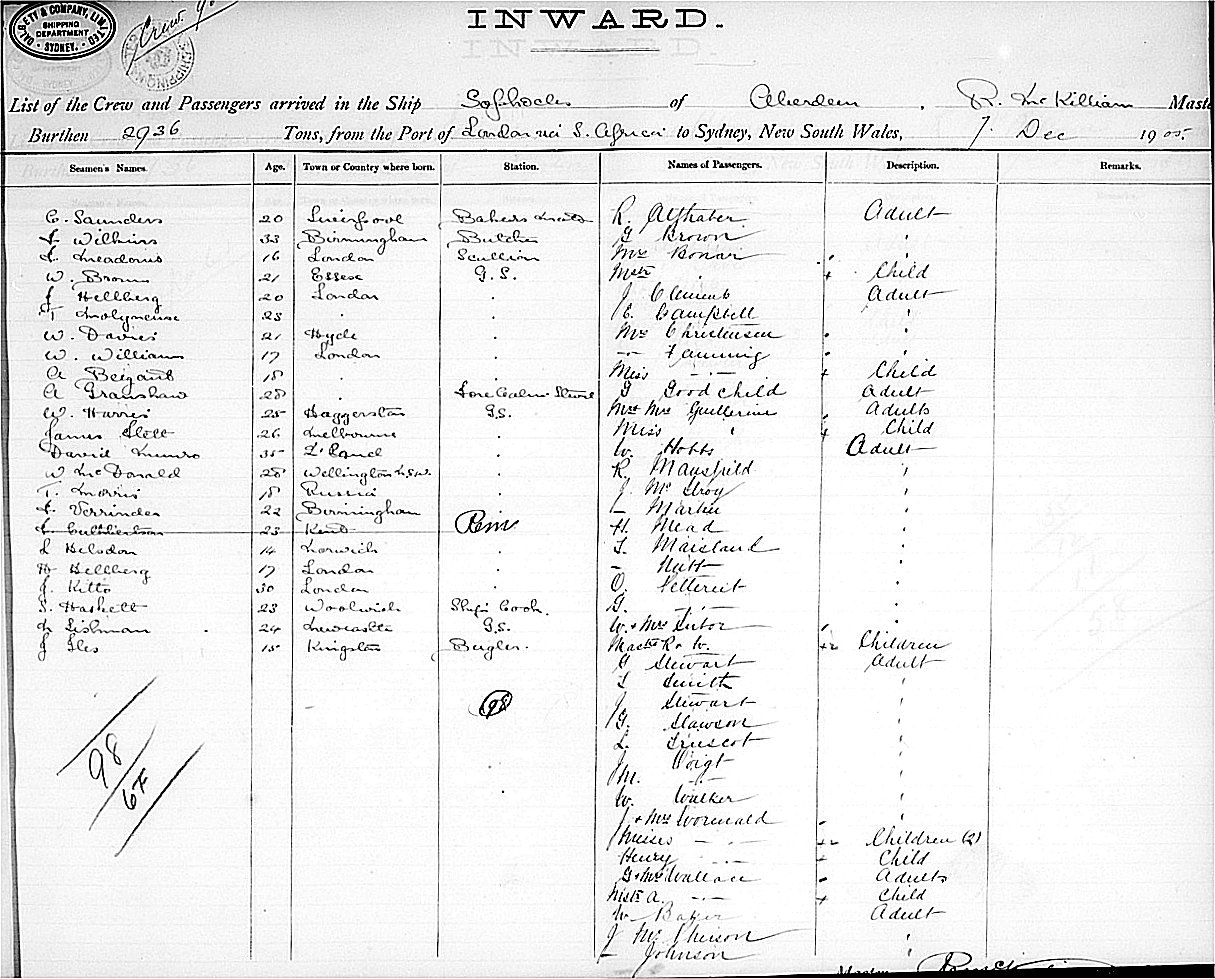 DALGETY & COMPANY, LIMITED
SHIPPING DEPARTMENT
SYDNEY.
Crew. 98
INWARD.
List of the Crew and Passengers arrived in the Ship Sophocles of Aberdeen. R. McKilliam Maste
Burthen 2936 Tons, from the Port of London via S. Africa to Sydney, New South Wales, 7. Dec 1905.
Seamen's Names. Age. Town or Country where born. Station. Names of Passengers. Description. Remarks.
C. Saunders 20 Liverpool Bakers R. Adult
F Wilkins 33 Birmingham Butcher G Brown "
L. Meadows 16 London Scullion Mrs Bonar "
W. Brown 21 Essex G.S. Mstr " + Child
J Hellberg 20 London . J Clements Adult
T Molyneuse 23 . . C. Campbell "
W. Davies 21 Hyde . Mrs Christensen "
W. Williams 17 London . -"- Fanning "
A Beigant 18 . . Miss -"- + Child
A Granshaw 28 . G Goodchild Adult
W. Harris 25 Haggerston G.S. Mr & Mrs Guillerine Adults
James Slott 26 Melbourne . Miss " + Child
David Munro 35 Z'land . W. Hobbs Adult
W McDonald 28 Wellington N.S.W. . R. Mansfield "
T. Morris 18 Russia . J. McIlroy "
F. Verrinder 22 Birmingham . - Martin "
F. Cuthbertson 23 Kent Rem H. Mead "
L Helsdon 14 Norwich . T. Maisland "
H Hellberg 17 London . - Nutt "
J. Kitto 30 London . O. Pettereit "
S. Haskett 23 Woolwich Ship's Cook. G. -"- "
N Lishman 24 Newcastle G.S. W. & Mrs "
J Iles 15 Kingston Bugler. Masts R & W. +2 Children
G Stewart Adult
T Smith "
98 J Stewart "
G. Slawson "
98/67 L. Truscot "
J Voigt
M. -"- "
W. Walker "
J & Mrs Wormald "
Misses -"- ++ Children (2)
Henry -"- + Child
G & Mrs Wallace Adults
Mstr A. -"- + Child
W Baker Adult
J McPherson "
- Johnson "
Master